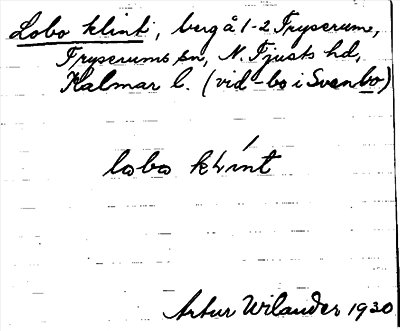 Lobo klint, berg å 1-2 Fryserum,
Fryserums sn, N. Tjusts hd,
Kalmar l. (vid -bo i Svenbo)
lobo klint
Artur Wilander 1930